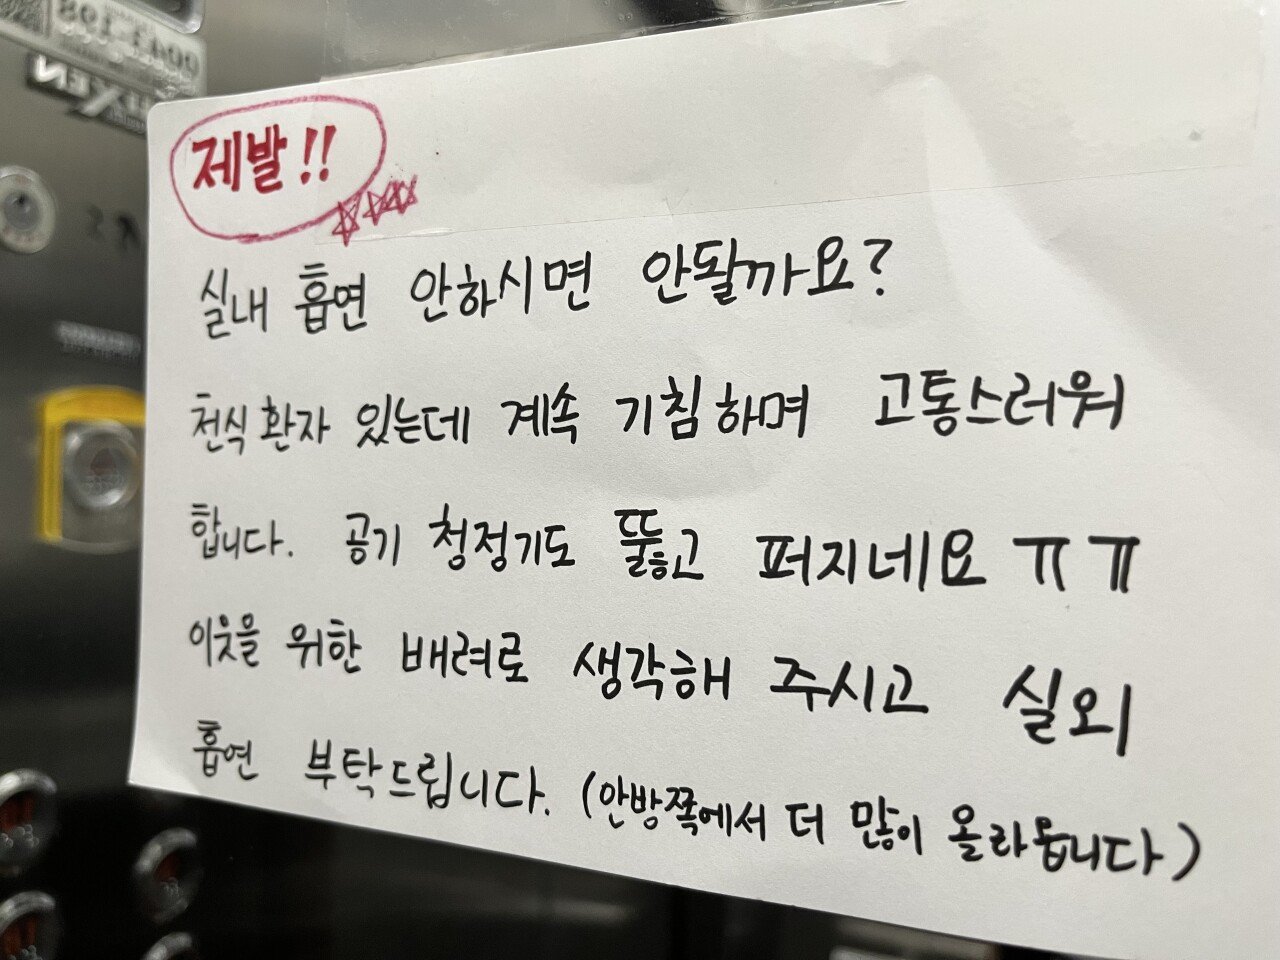 제발!!
실내 흡연 안하시면 안될까요?
천식 환자 있는데 계속 기침하며 고통스러워
합니다. 공기 청정기도 뚫고 퍼지네요 ㅠㅠ
이웃을 위한 배려로 생각해 주시고 실외
흡연 부탁드립니다. (안방쪽에서 더 많이 올라옵니다)